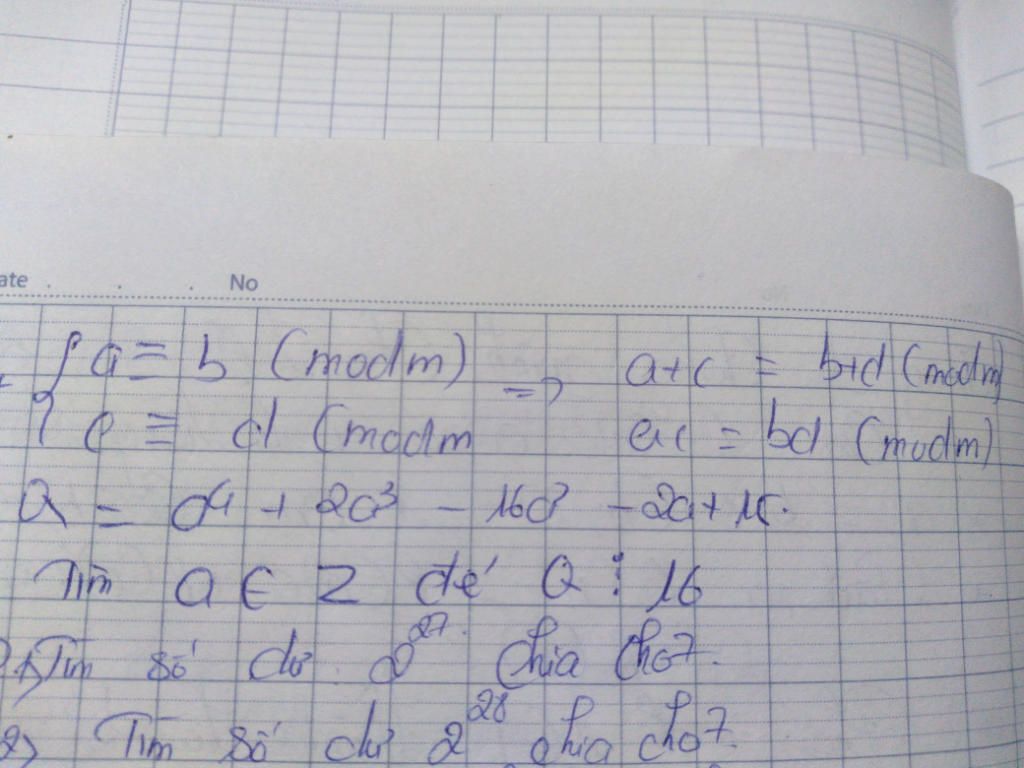 ate . . . No
{ a ≡ b (modm) => a+c = b+d (modm)
c ≡ d (modm ac = bd (modm)
Q = a⁴ + 2a³ - 16a² - 2a + 15.
Tìm a ∈ Z để Q ⋮ 16
1) Tìm số dư : 2²⁷ chia cho 7.
2) Tìm số dư 2²⁸ chia cho 7.